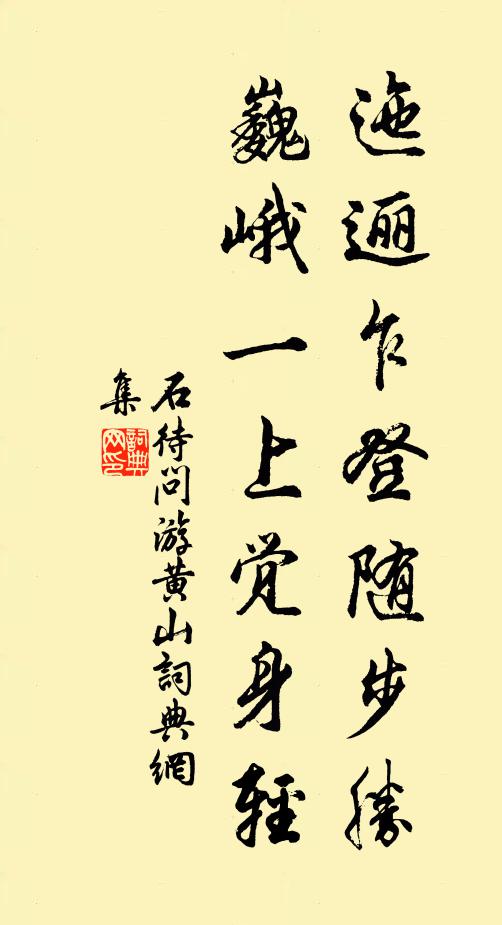 迤逦乍登随步胜
巍峨一上觉身轻
石待问游黄山詞典網
集
詞典网印